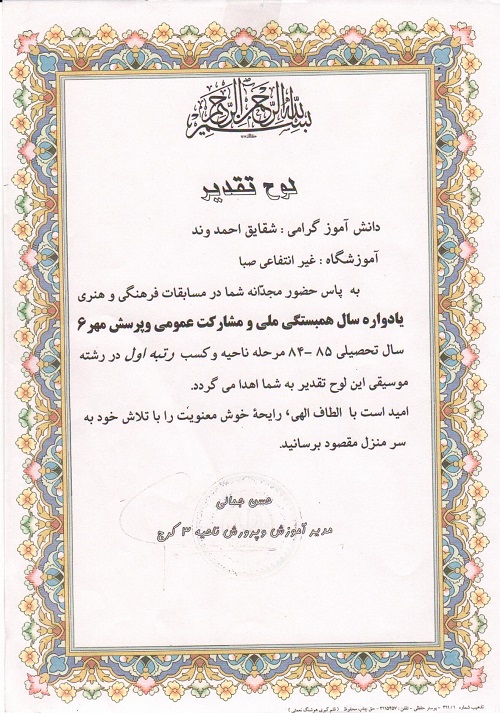 بسم الله الرحمن الرحیم
لوح تقدیر
دانش آموز گرامی : شقایق احمد وند
آموزشگاه : غیر انتفاعی صبا
به پاس حضور مجدّانه شما در مسابقات فرهنگی و هنری
یادواره سال همبستگی ملی و مشارکت عمومی وپرسش مهر۶
سال تحصیلی ۸۵ -۸۴ مرحله ناحیه و کسب رتبه اول در رشته
موسیقی این لوح تقدیر به شما اهدا می گردد.
امید است با الطاف الهی، رایحهٔ خوش معنویت را با تلاش خود به
سر منزل مقصود برسانید.
حسن جمالی
مدیر آموزش وپرورش ناحیه ۳ کرج